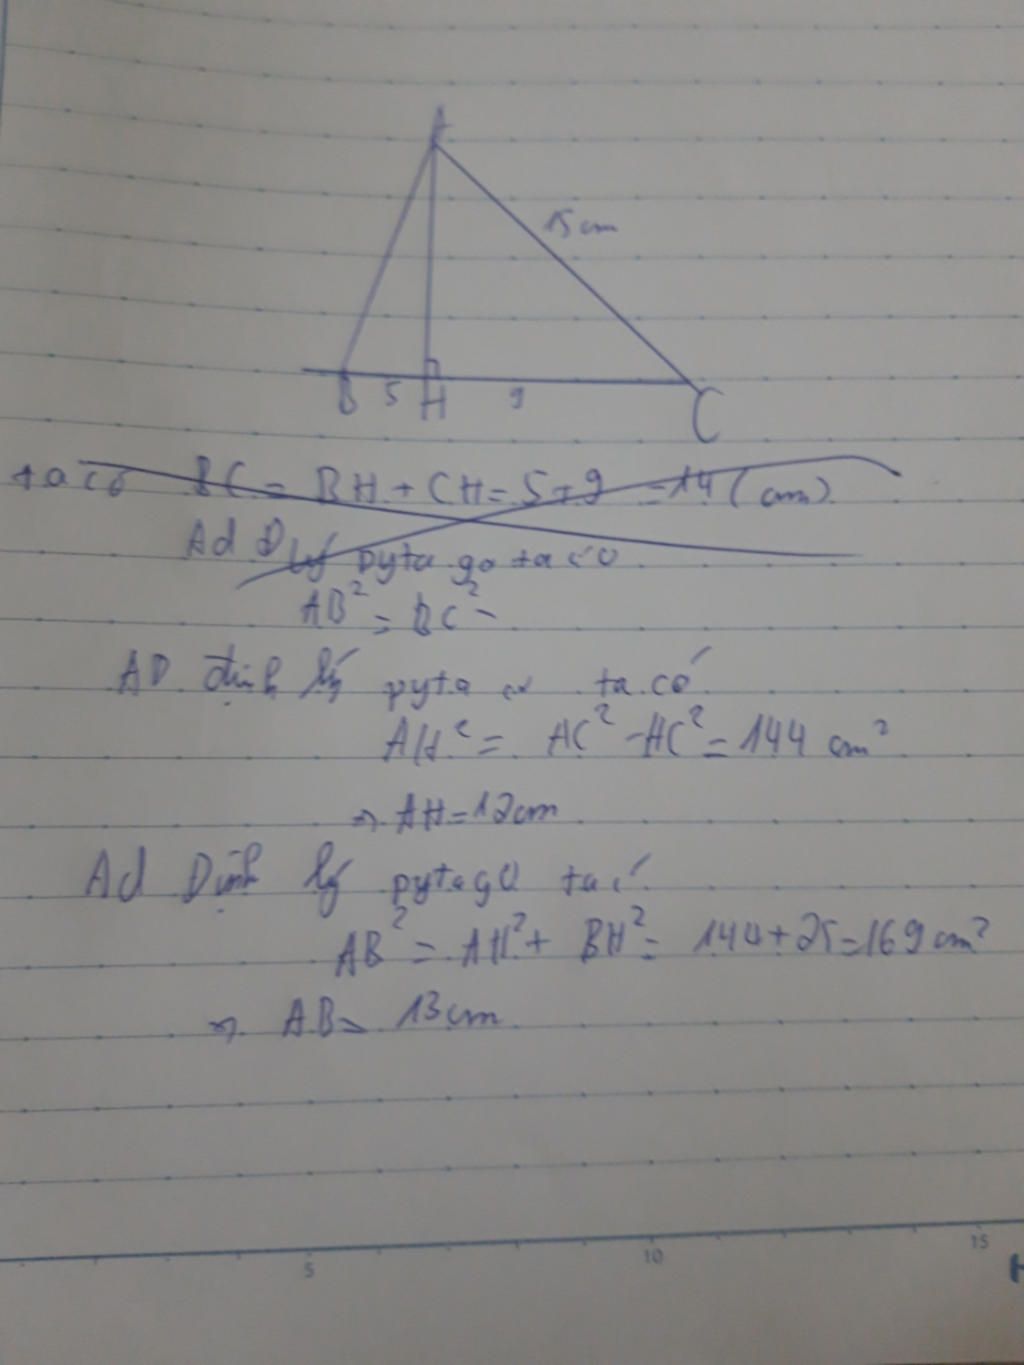 A
15cm
B 5 H 9 C
ta có BC = BH + CH = 5+9 = 14 (cm)
Ad Đ lý pytago ta có
AB² = BC² -
AD định lý pyta ta có
AH² = AC² - HC² = 144 cm²
=> AH = 12cm
Ad Định lý pytago ta c´
AB² = AH² + BH² = 144 + 25 = 169 cm²
=> AB = 13cm
5 10 15
H